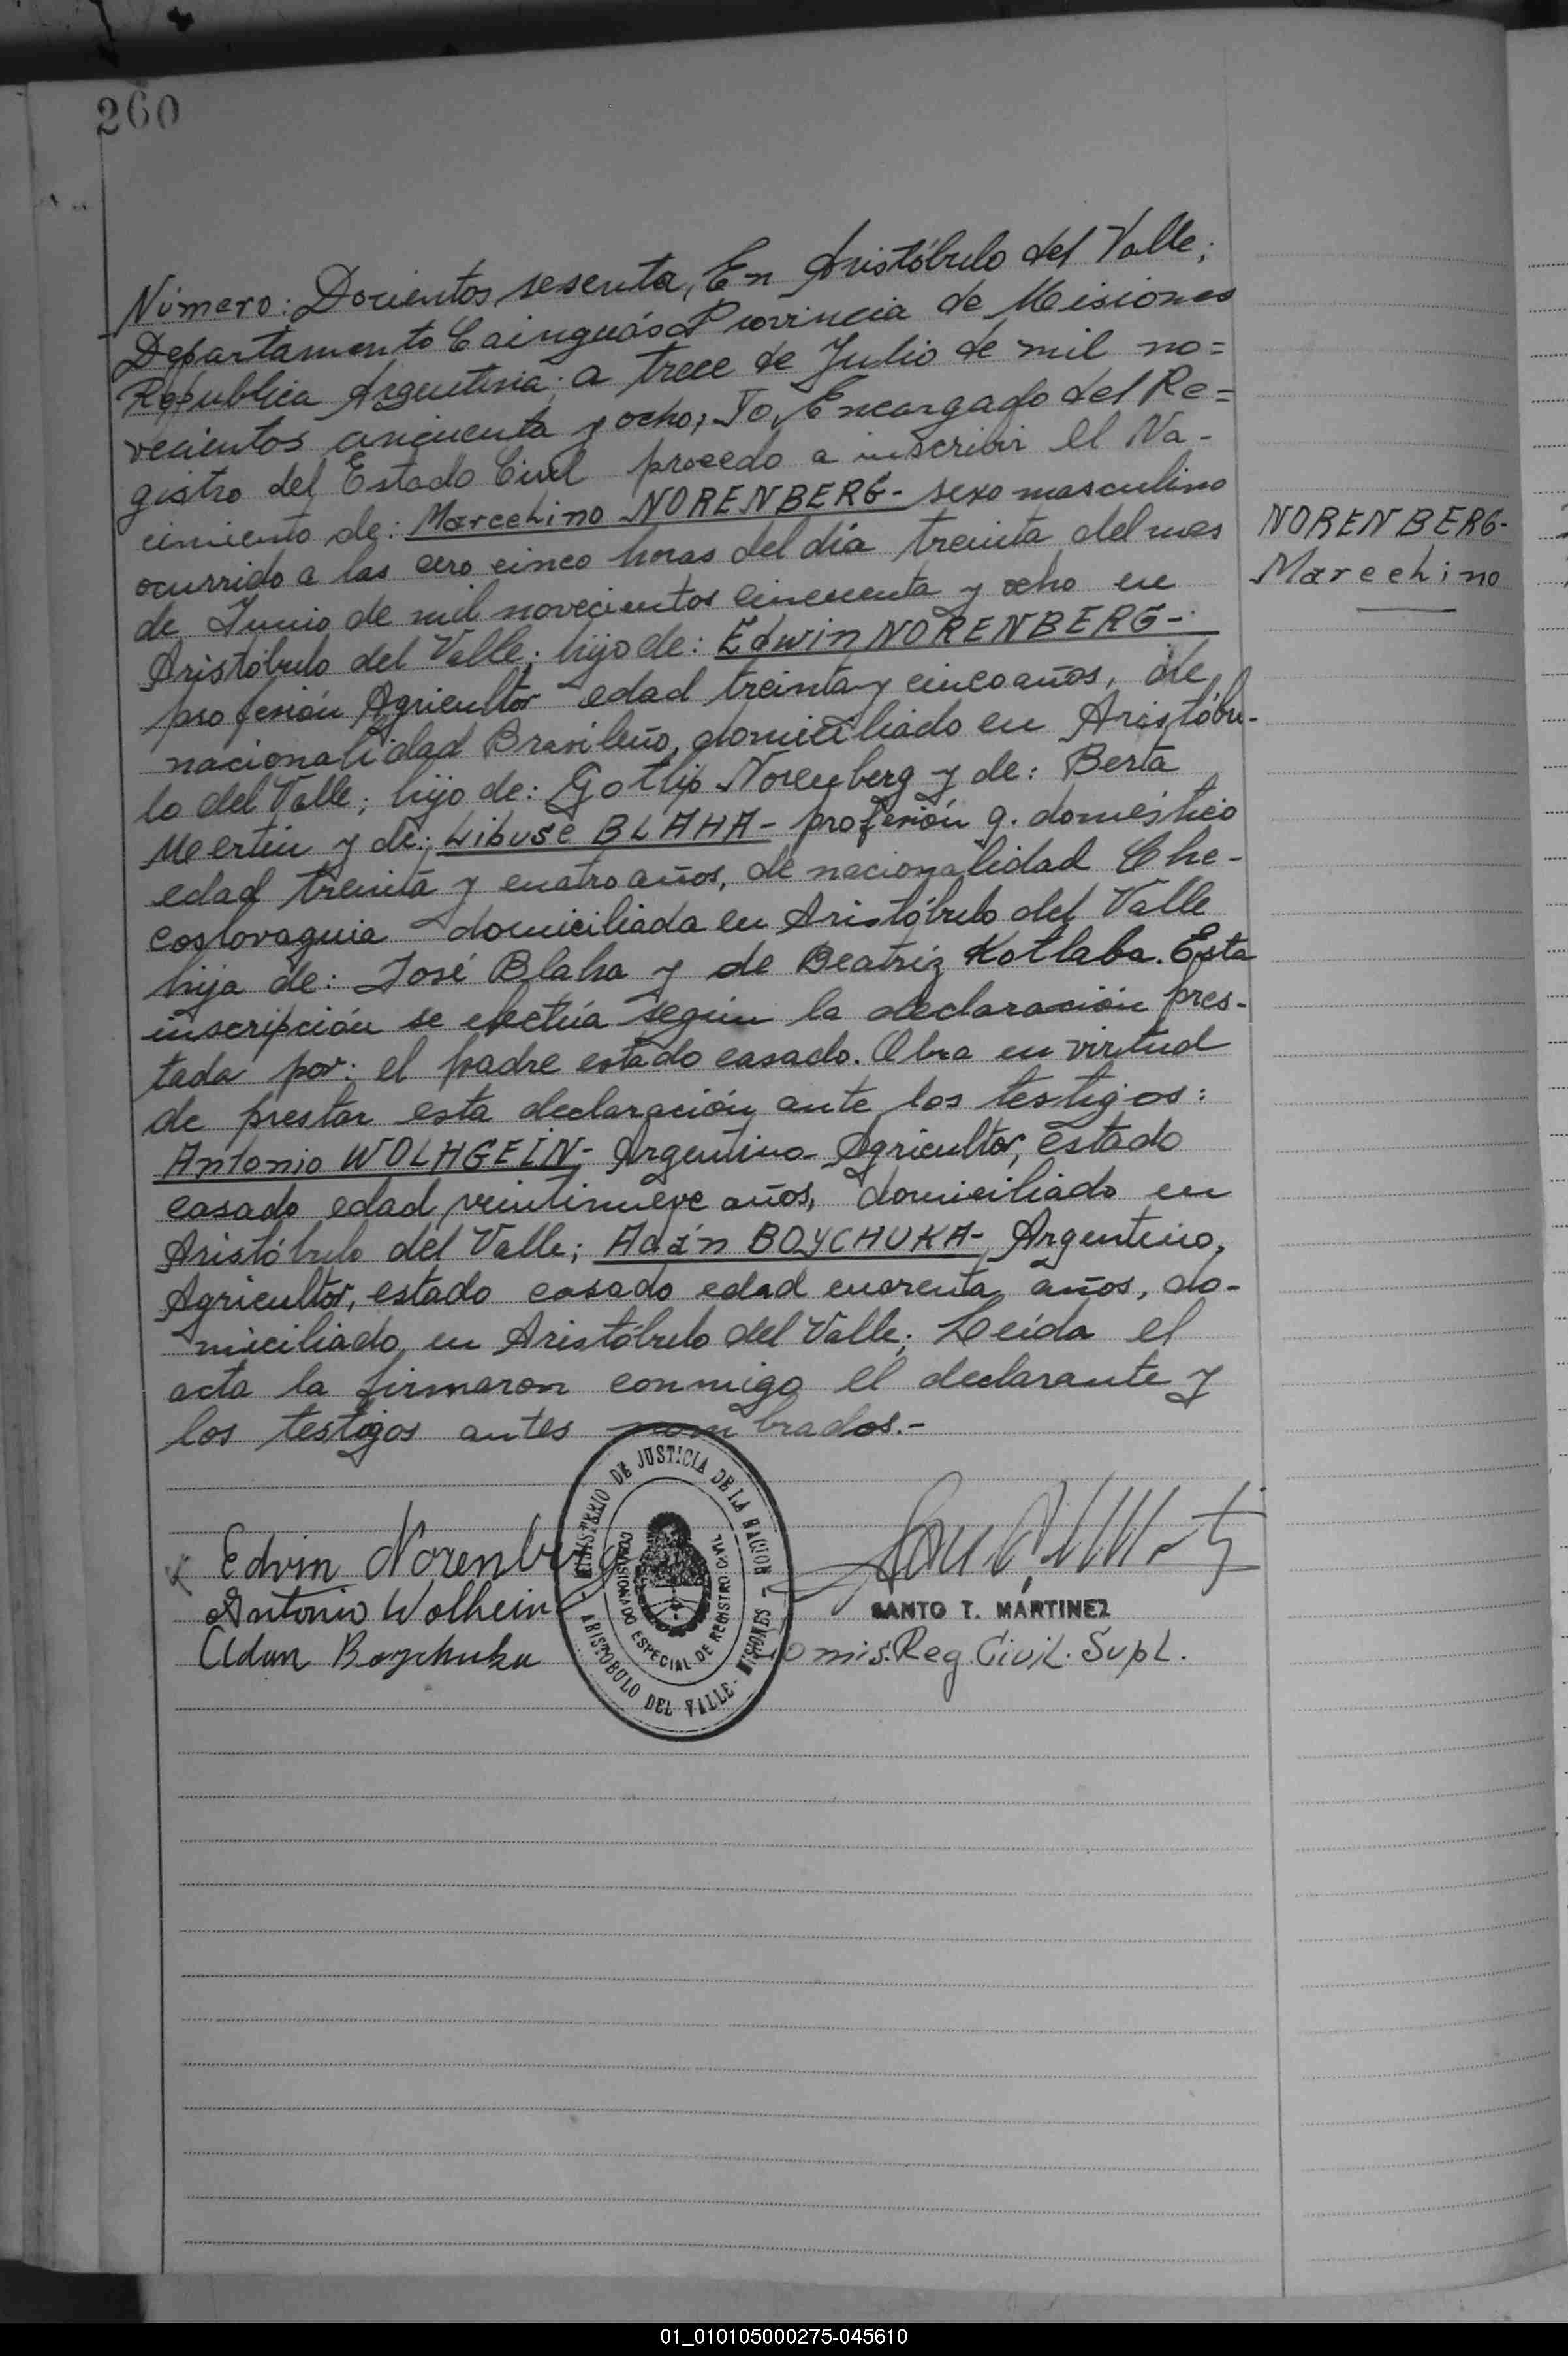 260
Número: Docientos sesenta, En Aristóbulo del Valle;
Departamento Cainguás Provincia de Misiones
República Argentina; a trece de Julio de mil no=
vecientos cincuenta y ocho; Yo, Encargado del Re=
gistro del Estado Civil procedo a inscribir el Na-
cimiento de: Marcehino NORENBERG- sexo masculino
ocurrido a las cero cinco horas del día treinta del mes
de Junio de mil novecientos cincuenta y ocho en
Aristóbulo del Valle; hijo de: Edwin NORENBERG-
profesión Agricultor edad treinta y cinco años, de
nacionalidad Brasileño, domiciliado en Aristóbu-
lo del Valle; hijo de: Gotlip Norenberg y de: Berta
Mertin y de: Libuse BLAHA- profesión q. doméstico
edad treinta y cuatro años, de nacionalidad Che-
coslovaquia domiciliada en Aristóbulo del Valle
hija de: José Blaha y de Beatriz Kotlaba. Esta
inscripción se efectúa según la declaración pres-
tada por: el padre estado casado. Obra en virtud
de prestar esta declaración ante los testigos:
Antonio WOLHGEIN- Argentino Agricultor, estado
casado edad veintinueve años, domiciliado en
Aristóbulo del Valle; Adán BOYCHUKA- Argentino,
Agricultor, estado casado edad cuarenta años, do-
miciliado en Aristóbulo del Valle; Leída el
acta la firmaron conmigo el declarante y
los testigos antes nombrados.-
NORENBERG-
Marcehino
Edvin Norenberg
Antonio Wolhein
Adan Boychuka
MINISTERIO DE JUSTICIA DE LA NACION
COMISIONADO ESPECIAL DE REGISTRO CIVIL
ARISTOBULO DEL VALLE - MISIONES
SANTO T. MARTINEZ
Comis. Reg. Civil. Supl.
01_010105000275-045610